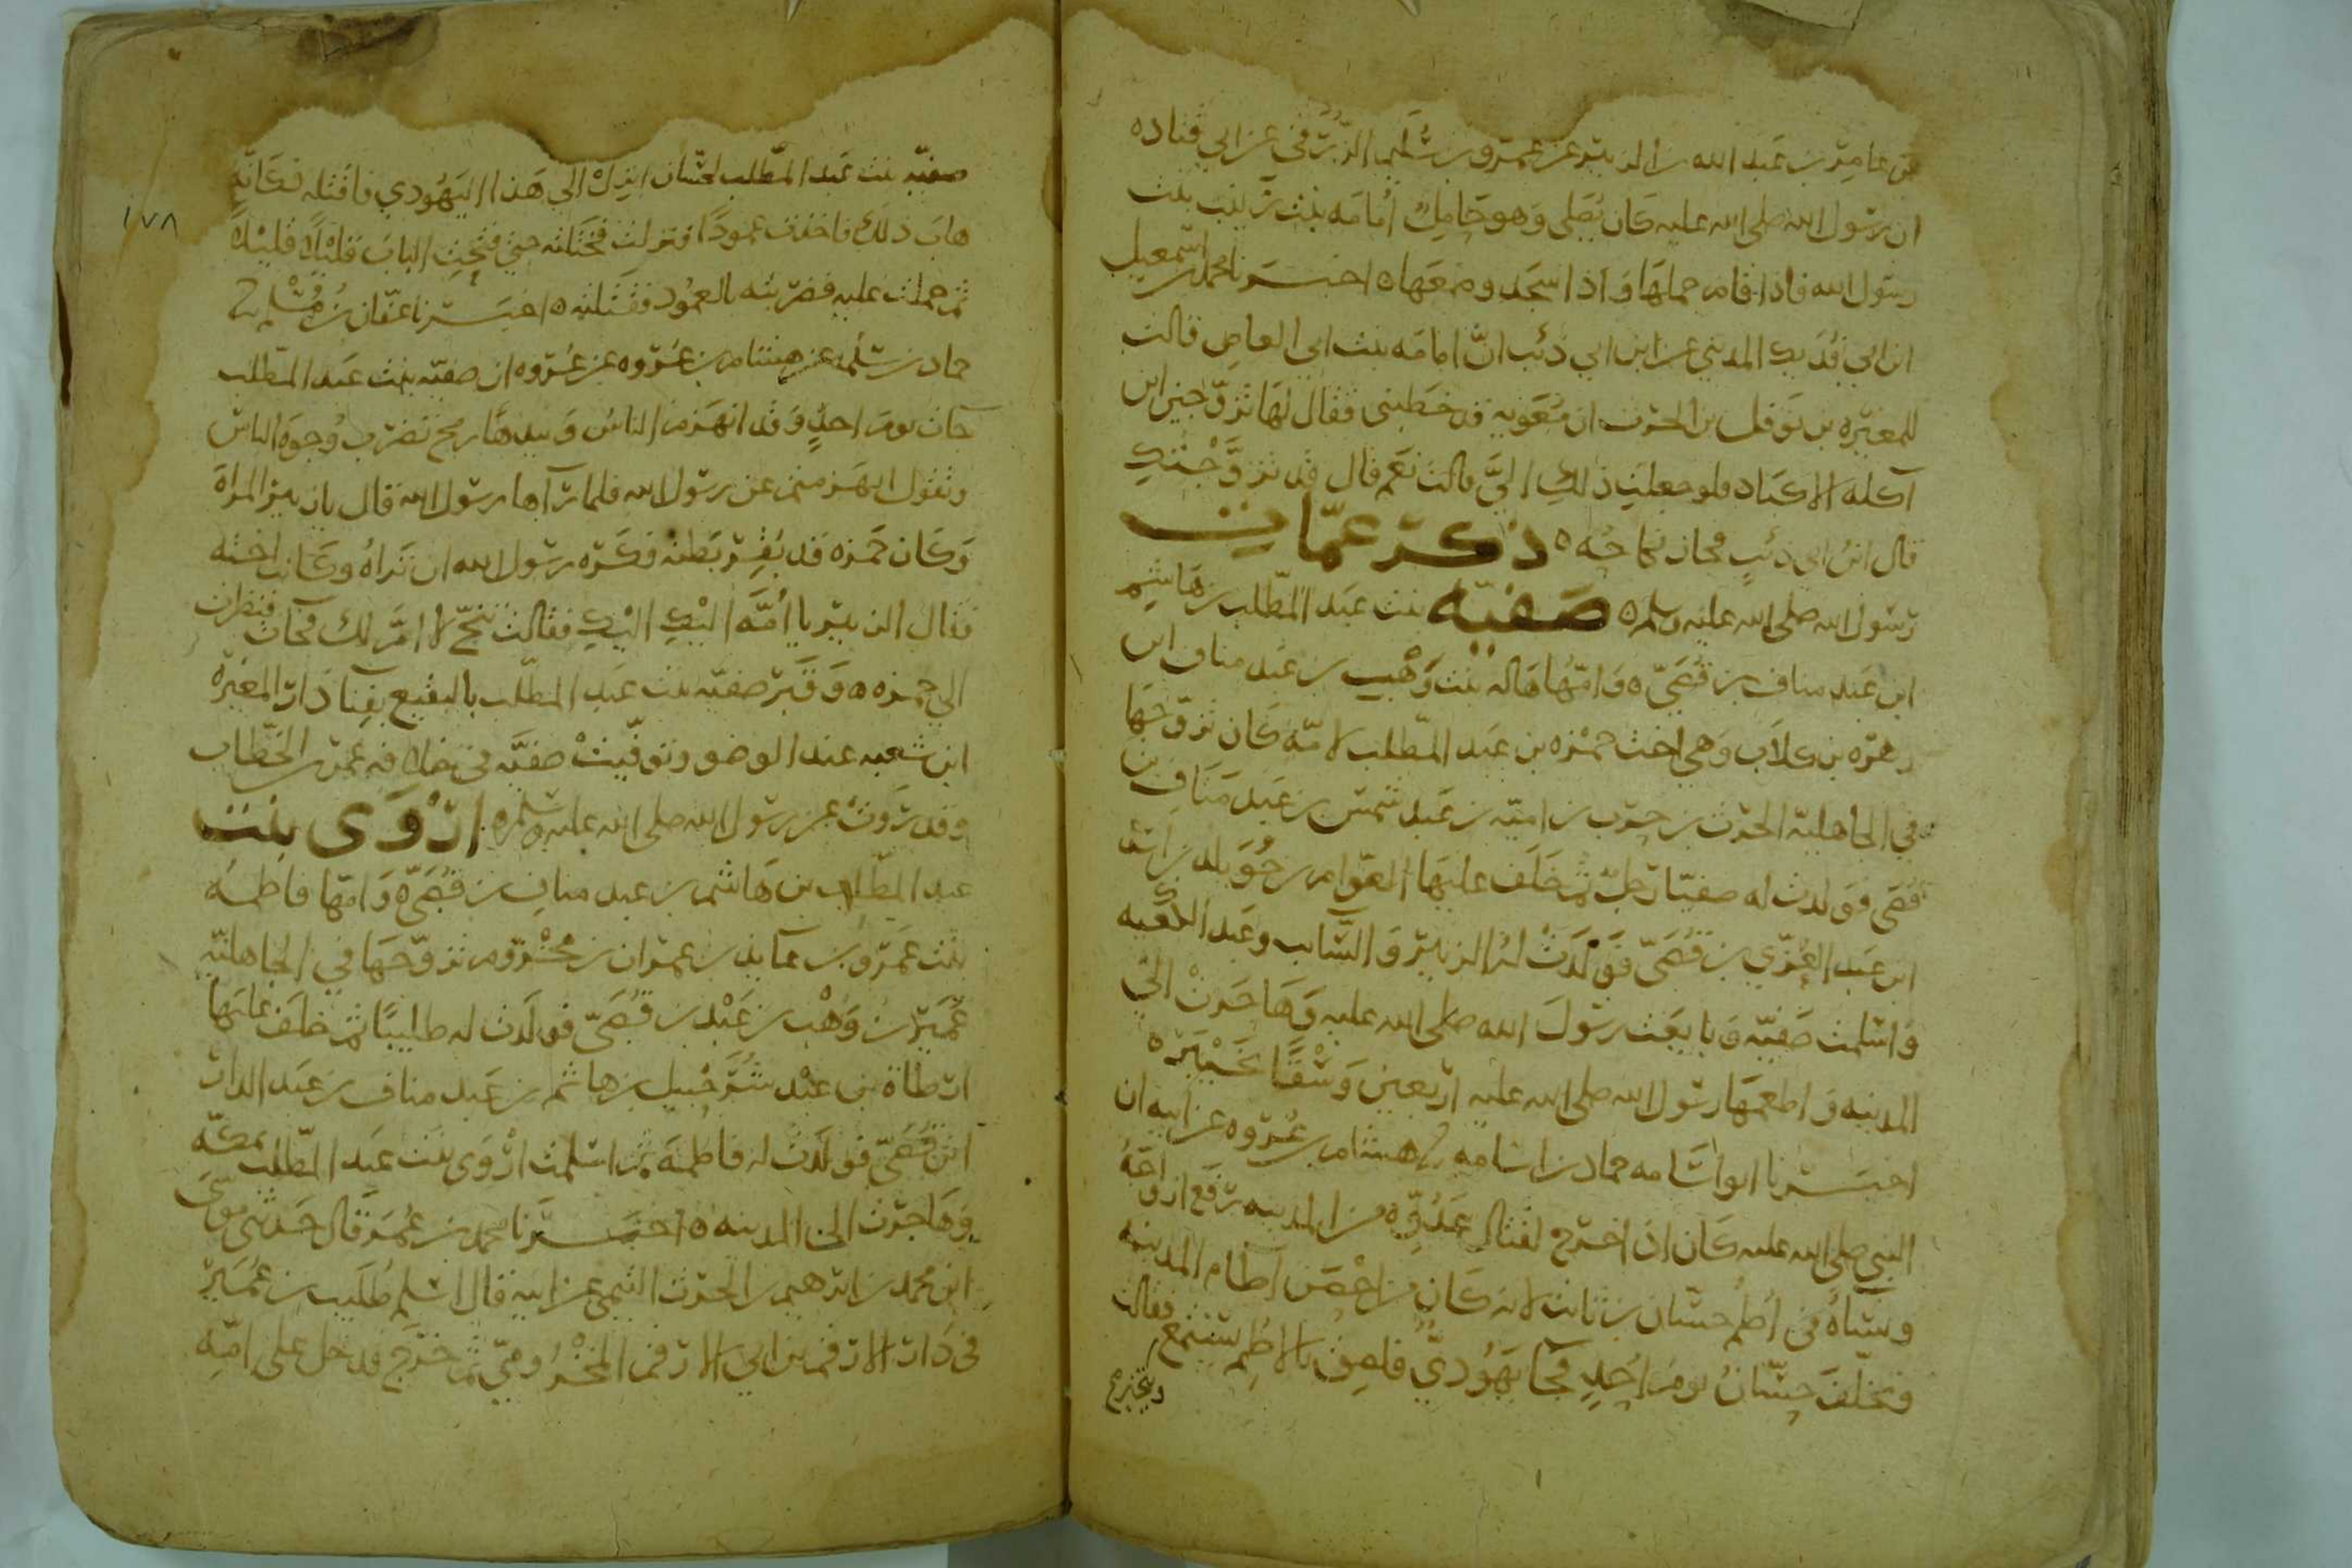 عن عامر بن عبد الله بن الزبير عن عمرو بن سليم الزرقي عن ابي قتاده
ان رسول الله صلى الله عليه كان يصلى وهو حامل أمامه بنت زينب بنت
رسول الله فاذا قام حملها واذا سجد وضعها ه اخبرنا محمد بن اسمعيل
ابن ابي فديك المدني عن ابن ابي ذئب انّ امامه بنت ابى العاص قالت
للمغيره بن نوفل بن الحرث ان معويه قد خطبنى فقال لها تزوجين ابن
آكله الاكباد فلو جعلت ذلك اليَّ قالت نعم قال قد تزوَّجْتُكِ
قال ابنُ ابى ذئبٍ فجاز نكاحُه ه ذكر عمّات
رسول الله صلى الله عليه وسلم ه صفيّه بنت عبد المطّلب بن هاشم
ابن عبد مناف بن قُصَىّ ه وامّها هاله بنت وهْيب بن عبد مناف ابن
زهره بن كلاب وهي اخت حمزه بن عبد المطّلب لامّه كان تزوّجها
في الجاهلية الحرث بن حرب بن اميّه بن عبد شمس بن عبد مناف بن
قصى فولدت له صفيّا رجلٌ ثم خلف عليها العوام بن خويلد بن اسد
ابن عبد العُزّي بن قُصَىّ فولدت له الزبير والسّايب وعبد الكعبه
واسلمت صفيّه وبايعت رسول الله صلى الله عليه وهاجرتْ الي
المدينه واطعمها رسول الله صلى الله عليه اربعين وسْقًا بخيبر ه
اخبرنا ابو اسامه حماد بن اسامه نا هشام بن عُروه عن ابيه ان
النبي صلى الله عليه كان اذا خرج لقتال عدوّه من المدينه رفع ازواجَهُ
ونساهُ في اُطم حسّان بن ثابت لانه كان من احْصَن آطام المدينه
وتخلف حسّانُ يومَ اُحُدٍ فجا يهُوديّ فلصق بالاطم يستمع فقالت
صفيّه بنت عبد المطّلب لحسّان انزل الى هذا اليهُودي فاقتله فكانّه
هاب ذلك فاخذت عمودًا فنزلت فختلته حتى فتحت الباب قليلاً قليلاً
ثم حملت عليه فضربته بالعمُود فقتلته ه اخبرنا عفّان بن مُسْلم نا
حماد بن سلمه عن هشام بن عُروه عن عُروه ان صفيّه بنت عبد المطّلب
جات يوم احدٍ وقد انهزم الناس وبيدها رمح تضرب وُجوه الناس
وتقول انهزمتم عن رسول الله فلما رآها رسول الله قال يازبير المراة
وكان حمزه قد بُقِر بطنه فكره رسول الله ان تراهُ وكانت اخته
فقال الزبير يا أُمَّه اليْكِ اليْكِ فقالت تنحّ لا امّ لك فجات فنظرت
الي حمزه ه وقبر صفيّه بنت عبد المطّلب بالبقيع بفنا دار المغيره
ابن شعبه عند الوضو وتوفّيتْ صفيّه في خلافه عمر بن الخطّاب
وقد روتْ عن رسول الله صلى الله عليه وسلم ه ارْوَى بنت
عبد المطّلب بن هاشم بن عبد مناف بن قُصَىّ ه وامّها فاطمه
بنت عمرو بن عايذ بن عمران بن مخْزوم تزوّجها في الجاهليّه
عُمَيْر بن وهْب بن عبْد بن قُصَىّ فولدت له طليبًا ثم خلف عليها
ارطاة بن عبْد شُرَحْبيل بن هاشم بن عبد مناف بن عبد الدار
ابن قُصَىّ فولدت له فاطمه ثم اسلمت ارْوَى بنت عبد المطّلب بمكّه
وهاجرت الى المدينه ه اخبرنا محمد بن عُمر قال حدثنى موسَى
ابن محمد بن ابرهيم بن الحرث التيمى عن ابيه قال اسلم طُلَيب بن عُمَيْر
فى دار الارقم بن ابي الارقم المخْزُوميّ ثم خرج فدخل على امّه
١٧٨